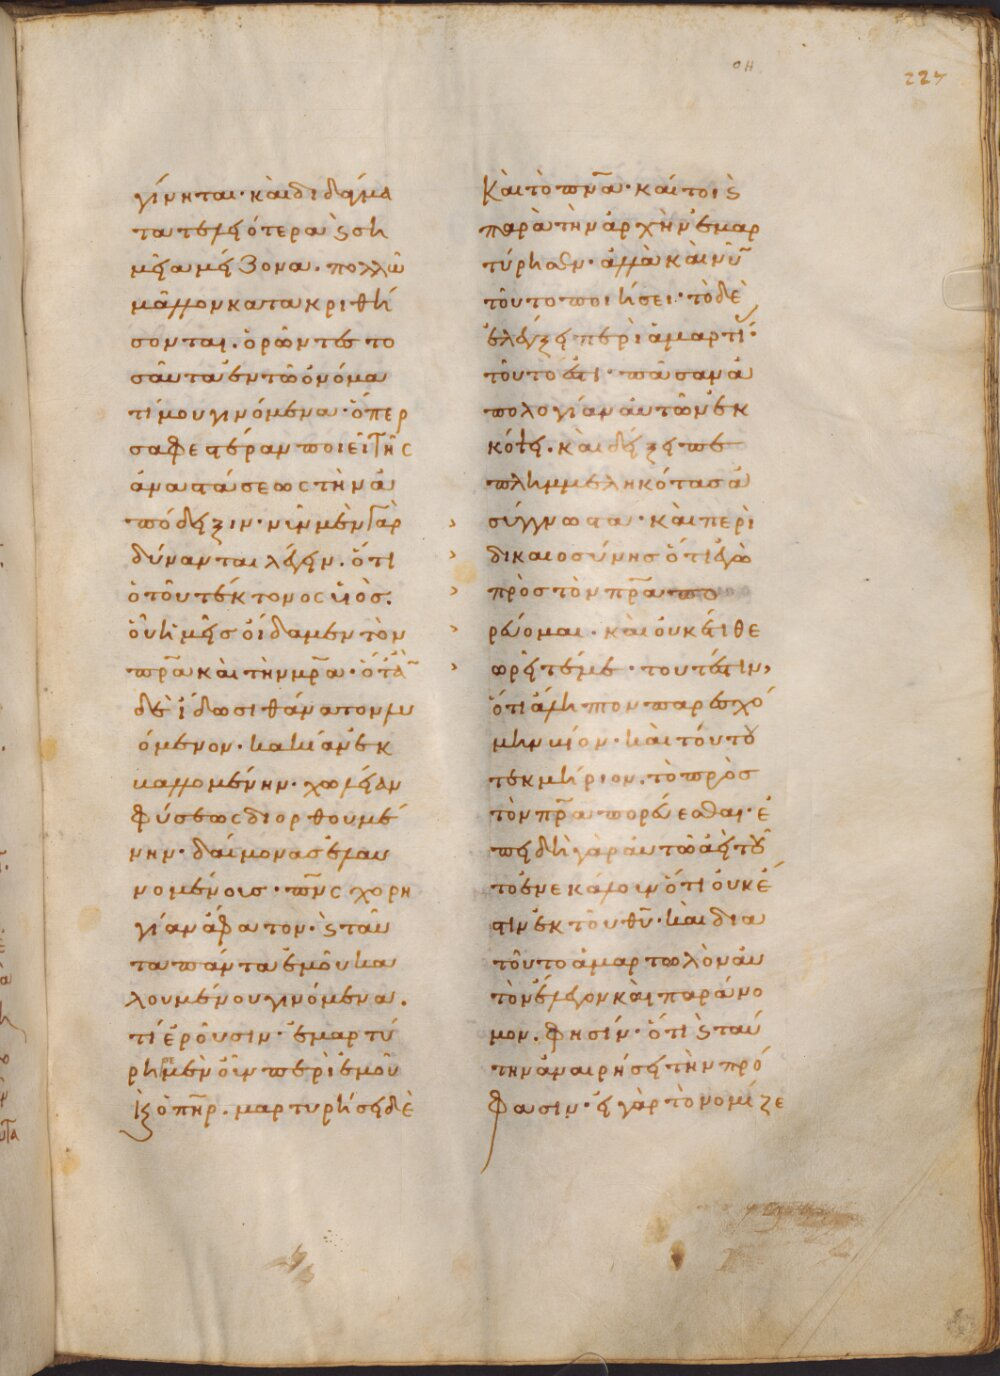 ΟΗ
227
γίνηται· καὶ διδάγμα
τα τελεώτερα ϗ ση
μεῖα μείζονα. πολλῶ
μᾶλλον κατακριθή
σονται. ὁρῶντες το
σαῦτα ἐν τῶ ὀνόμα
τί μου γινόμενα· ὅπερ
σαφεστέραν ποιεῖ τῆς
ἀναστάσεως τὴν ἀ
πόδειξιν· νῦν μὲν γὰρ
δύνανται λέγειν. ὅτι
ὁ τοῦ τέκτονος υἱὸς.
οὗ ἡμεῖς οἴδαμεν τὸν
πρ̅α καὶ τὴν μρ̅α· ὅτἂ
δὲ ἴδωσι θάνατον λυ
όμενον· κακίαν ἐκ
καλλομένην· χωλείαν
φύσεως διορθουμέ
νην· δαίμονας ἐλαυ
νομένους· πν̅ς χορη
γίαν ἄφατον· ϗ ταῦ
τα πάντα ἐμοῦ κα
λουμένου γινόμενα.
τί ἐροῦσιν· ἐμαρτύ
ρησε μὲν οὖν περὶ ἐμοῦ
κ ὁ πη̅ρ. μαρτυρήσει δὲ
Καὶ τὸ πνα̅· καί τοι ϗ
παρὰ τὴν ἀρχὴν ἐμαρ
τύρησεν· ἀλλὰ καὶ νῦ
τοῦτο ποιήσει· τὸ δὲ
ἐλέγξει περὶ ἁμαρτί·
τοῦτό ἐστι· πᾶσαν ἀ
πολογίαν αὐτῶν ἐκ
κόψει. καὶ δείξει πε
πλημμεληκότας ἀ
σύγγνωστα· καὶ περὶ
δικαιοσύνης ὅτι ἐγὼ
πρὸς τὸν πρ̅α πο
ρεύομαι· καὶ οὐκέτι θε
ωρεῖτέ με· τουτέστιν,
ὅτι ἄληπτον παρεσχό
μην βίον· καὶ τούτου
τεκμήριον. τὸ πρὸς
τὸν πρ̅α πορεύεσθαι· ἐ
πειδὴ γὰρ αὐτῶ ἀεὶ τοῦ
το ἐνεκάλουν ὅτι οὐκ ἔ
στιν ἐκ τοῦ θυ̅· καὶ δια
τοῦτο ἁμαρτωλὸν αὐ
τὸν ἔλεγον καὶ παράνο
μον. φησίν· ὅτι ϗ ταύ
την ἀναιρήσει τὴν πρό
φασιν· εἰ γὰρ τὸ νομίζε